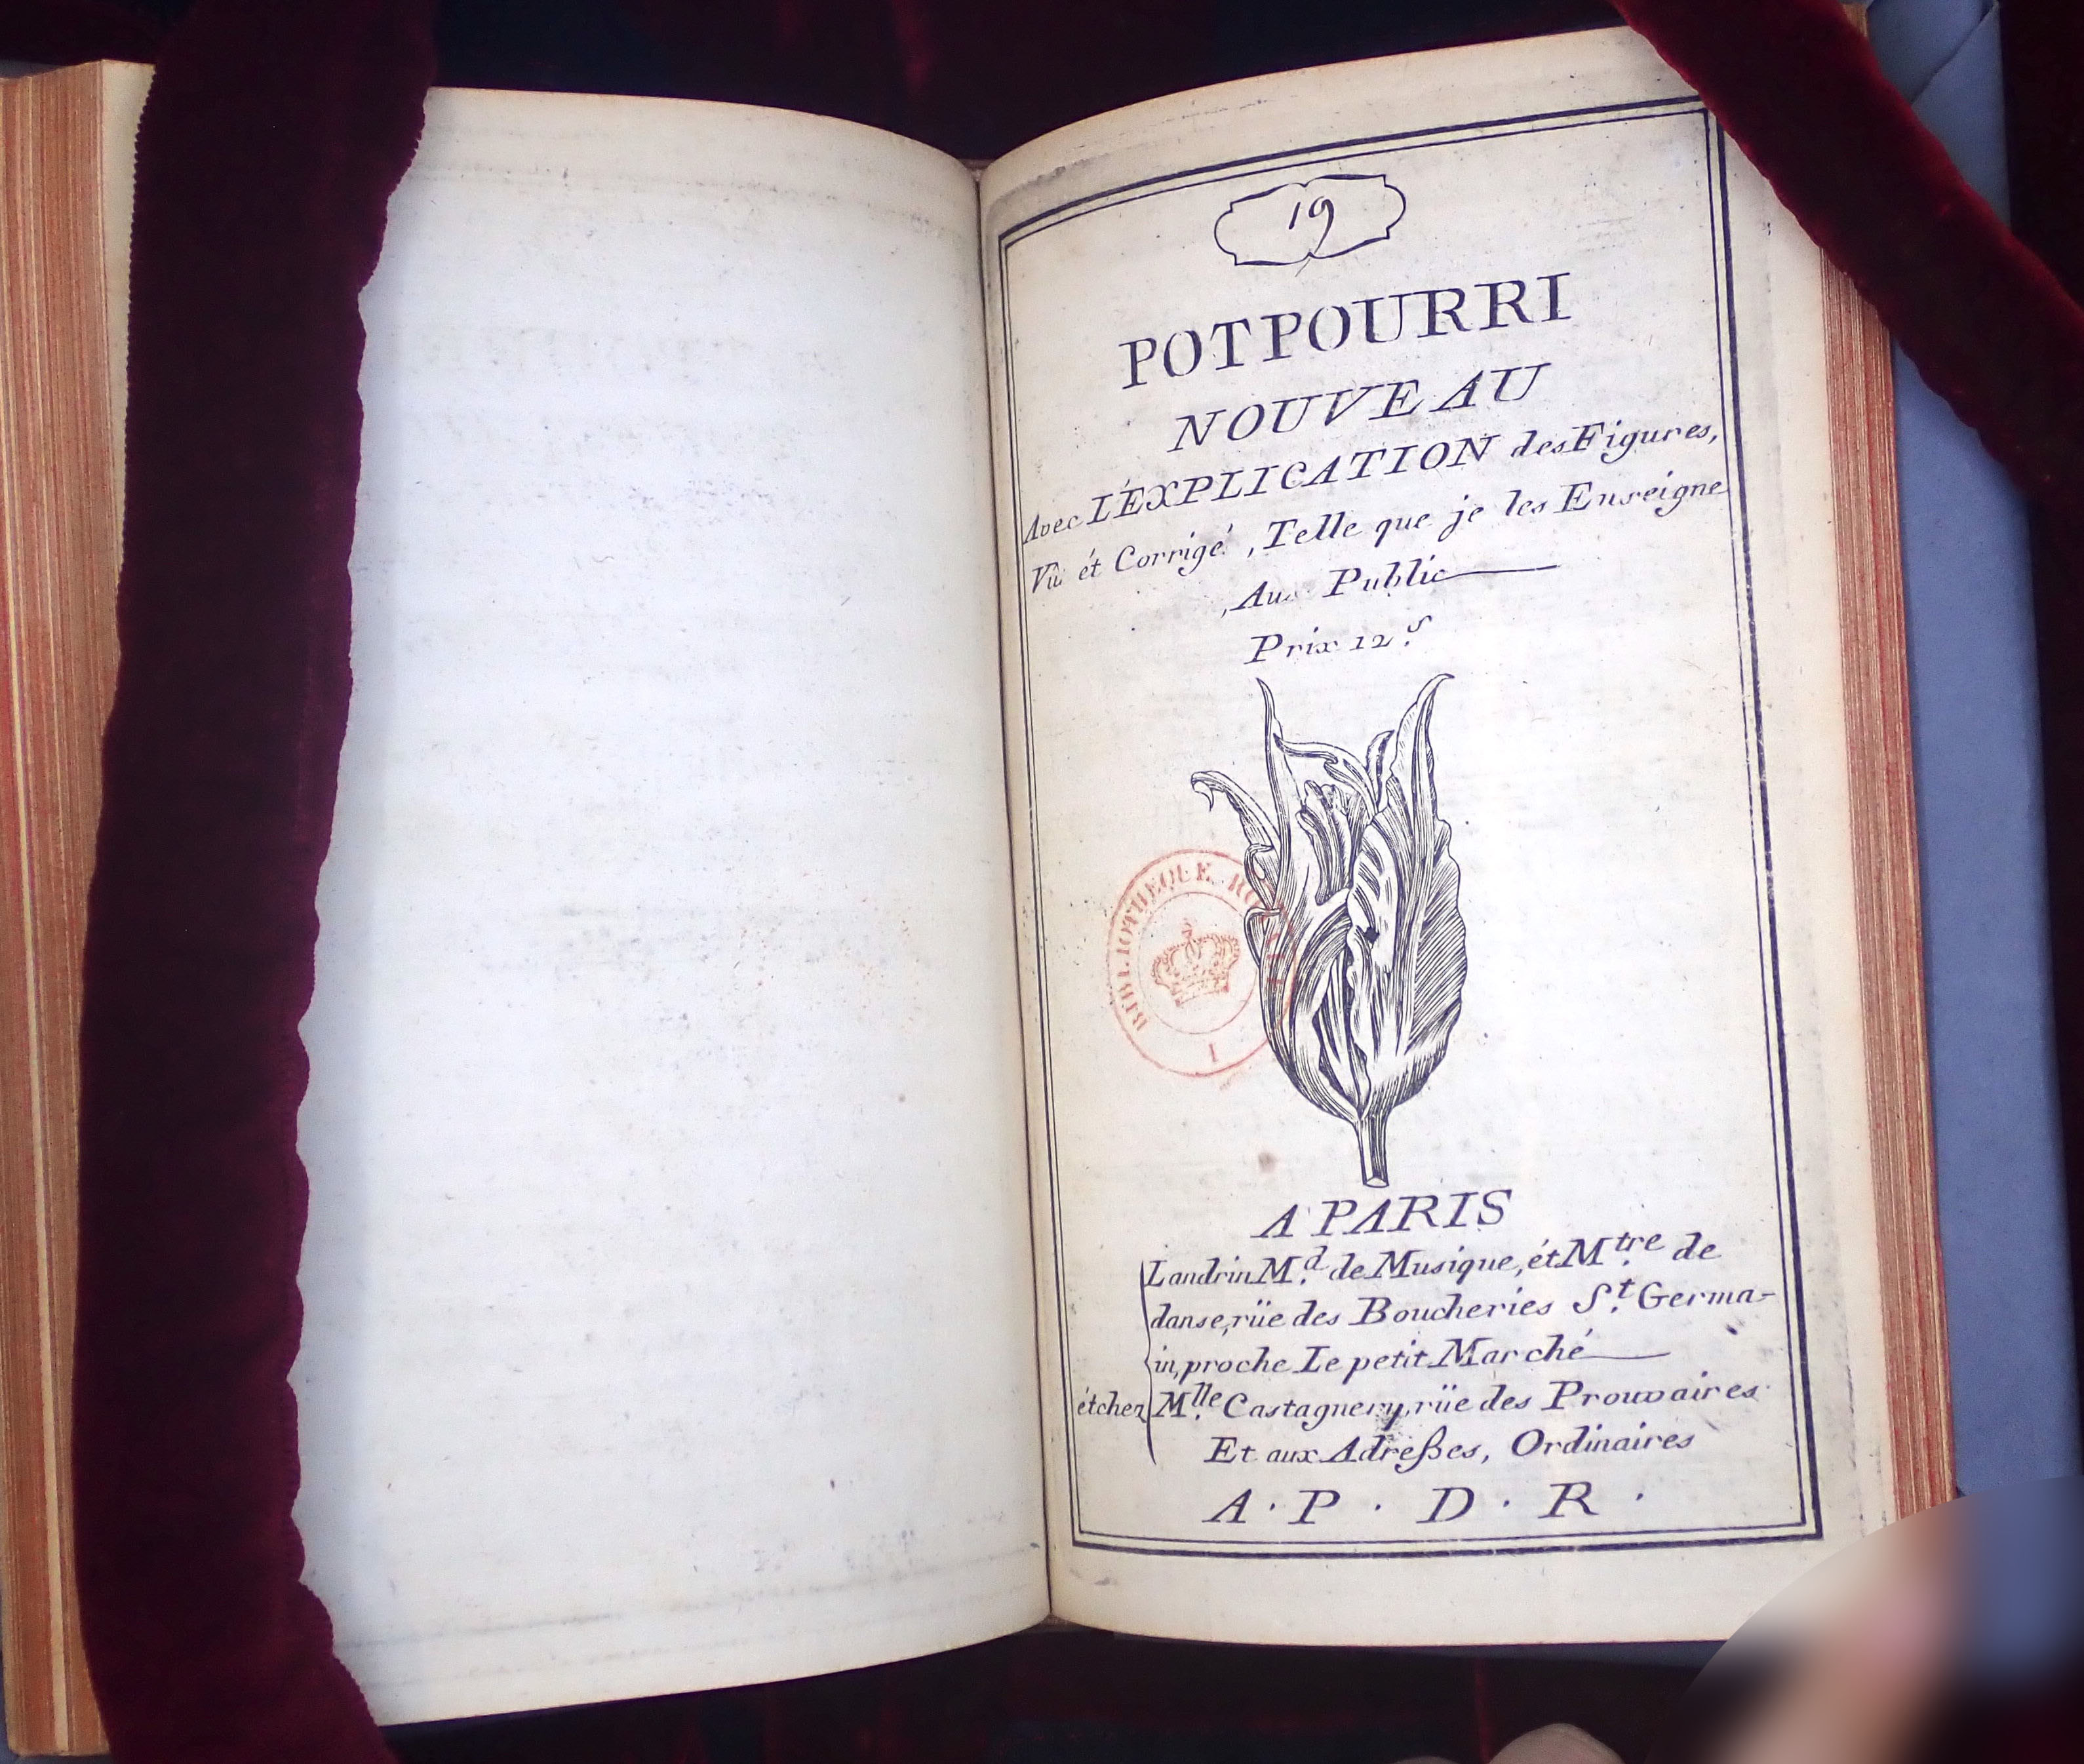 19
POTPOURRI
NOUVEAU
Avec L'EXPLICATION des Figures,
Vû ét Corrigé, Telle que je les Enseigne
Aux Public
Prix 12.s
BIBLIOTHEQUE ROYALE
I
A PARIS
Landrin M.d de Musique, ét M.tre de
danse, rüe des Boucheries S.t Germa-
in, proche Le petit Marché
ét chez M.lle Castagnery, rüe des Prouvaires
Et aux Adreßes, Ordinaires
A . P . D . R .